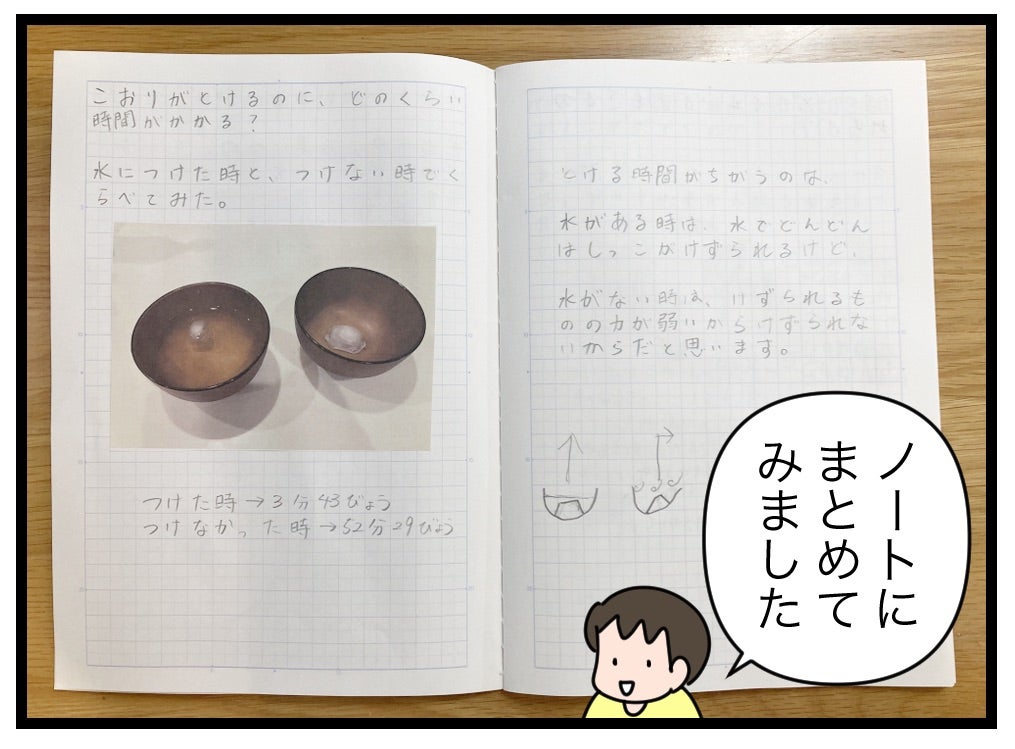 こおりがとけるのに、どのくらい
時間がかかる?
水につけた時と、つけない時でく
らべてみた。
つけた時→3分43びょう
つけなかった時→52分29びょう
とける時間がちがうのは、
水がある時は、水でどんどん
はしっこがけずられるけど、
水がない時は、けずられるも
のの力が弱いからけずられな
いからだと思います。
ノートに
まとめて
みました